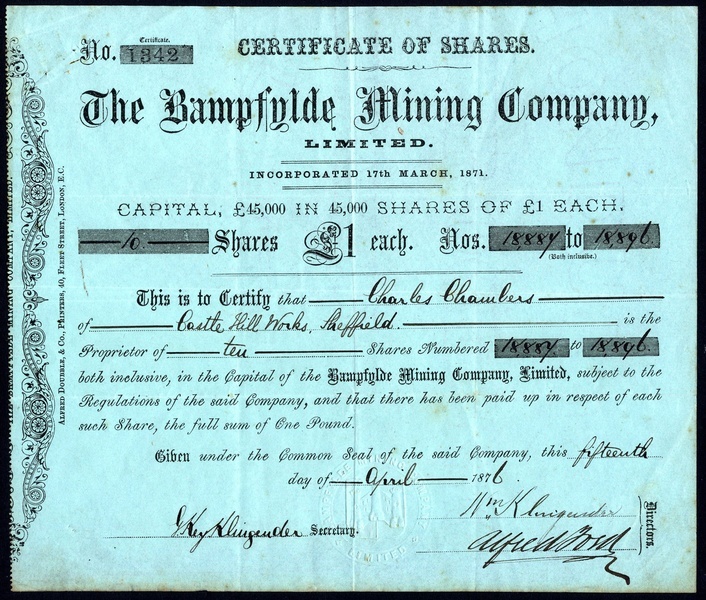 Certificate.
No. 1342
CERTIFICATE OF SHARES.
The Bampfylde Mining Company,
LIMITED.
INCORPORATED 17th MARCH, 1871.
CAPITAL, £45,000 IN 45,000 SHARES OF £1 EACH.
10 Shares £1 each. Nos. 18887 to 18896
(Both inclusive.)
This is to Certify that Charles Chambers
of Castle Hill Works, Sheffield. is the
Proprietor of ten Shares Numbered 18887 to 18896
both inclusive, in the Capital of the Bampfylde Mining Company, Limited, subject to the
Regulations of the said Company, and that there has been paid up in respect of each
such Share, the full sum of One Pound.
Given under the Common Seal of the said Company, this fifteenth
day of April 1876.
Wm Klingender
Klingender Secretary.
Alfred Ford
Directors.
LIMITED
ALFRED DOUBBLE, & CO., PRINTERS, 40, FLEET STREET, LONDON, E.C.